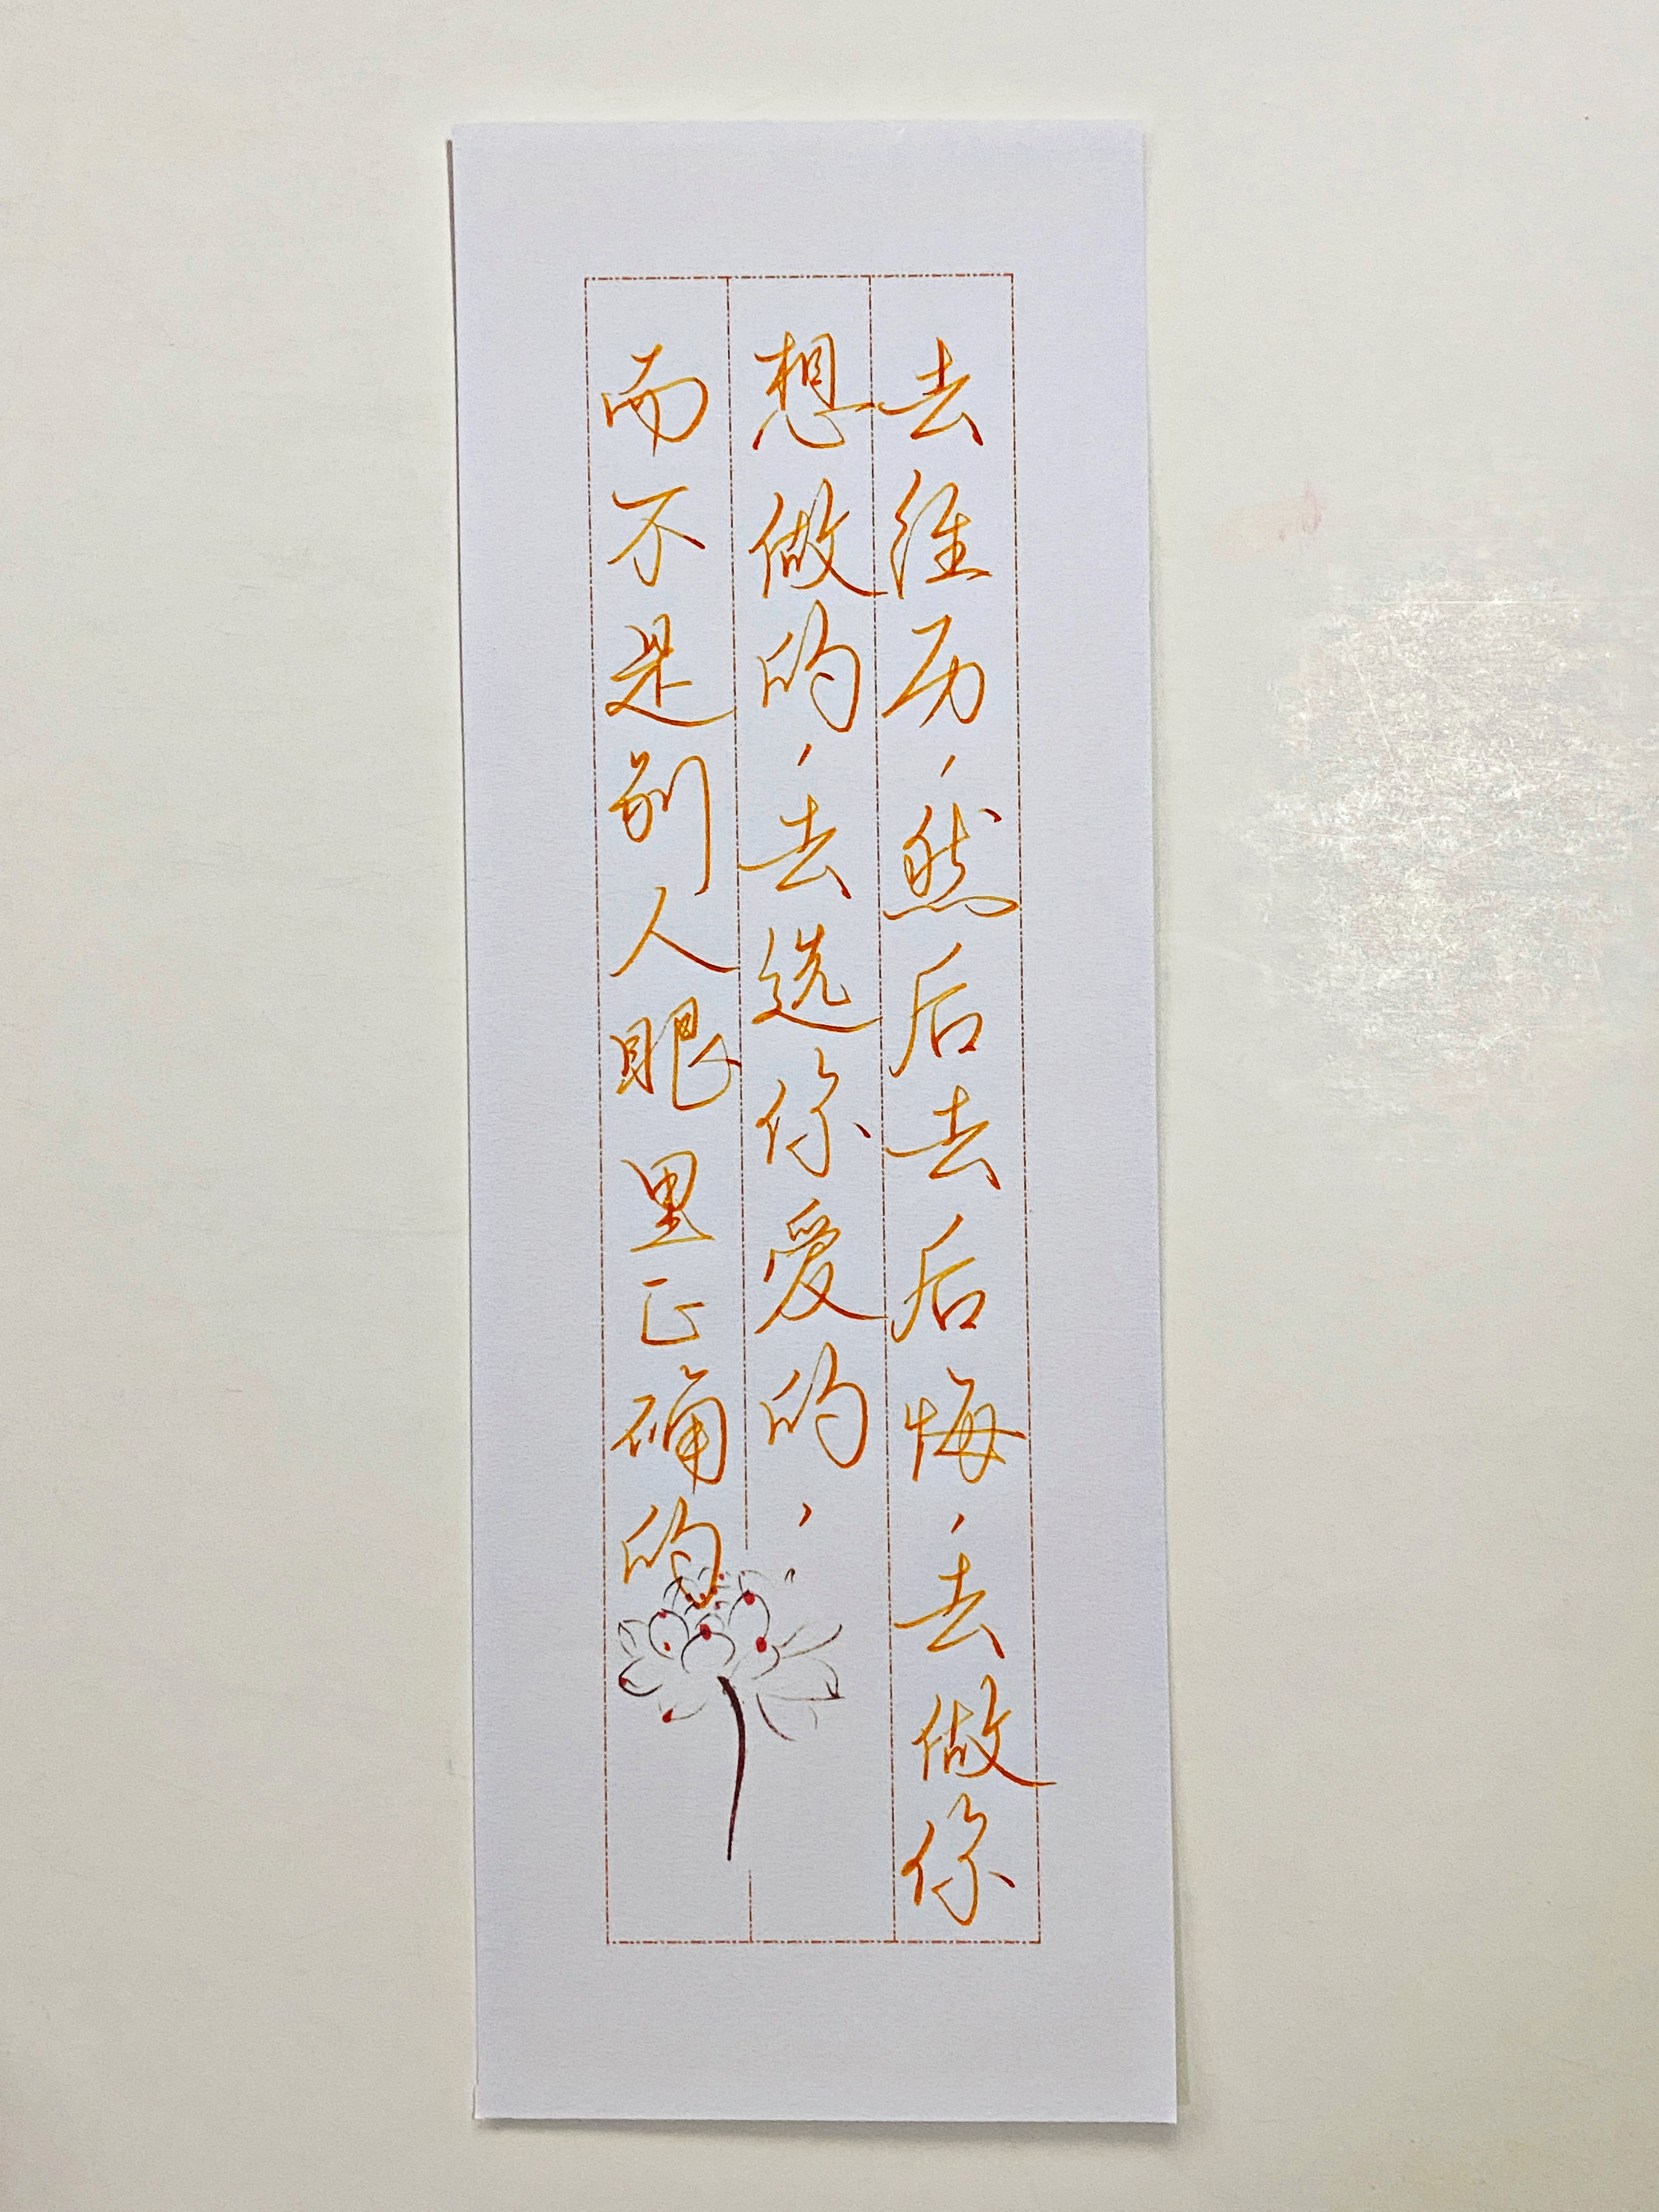 去经历，然后去后悔，去做你
想做的，去选你爱的，
而不是别人眼里正确的